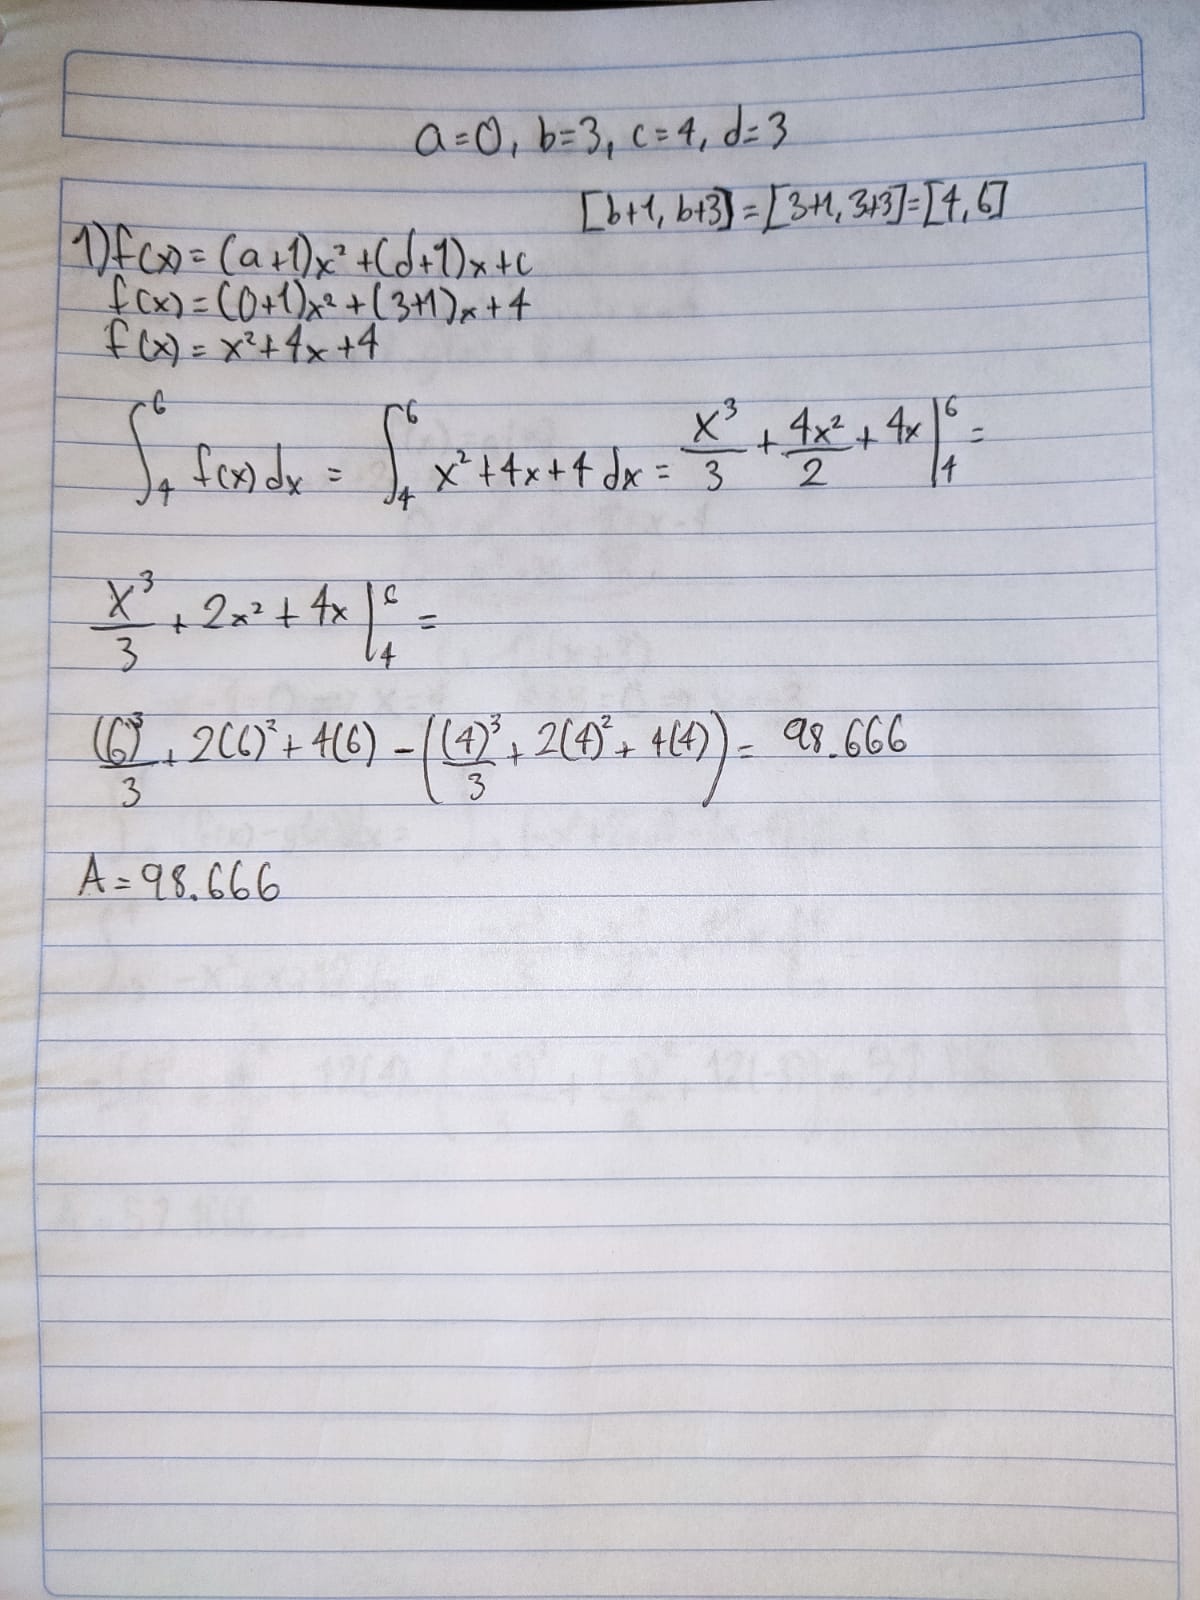 a=0, b=3, c=4, d=3
[b+1, b+3]=[3+1, 3+3]=[4, 6]
1) f(x) = (a+1)x² + (d+1)x + c
f(x) = (0+1)x² + (3+1)x + 4
f(x) = x² + 4x + 4
∫₄⁶ f(x) dx = ∫₄⁶ x² + 4x + 4 dx = x³/3 + 4x²/2 + 4x |₄⁶ =
x³/3 + 2x² + 4x |₄⁶ =
(6)³/3 + 2(6)² + 4(6) − ((4)³/3 + 2(4)² + 4(4)) = 98.666
A = 98.666